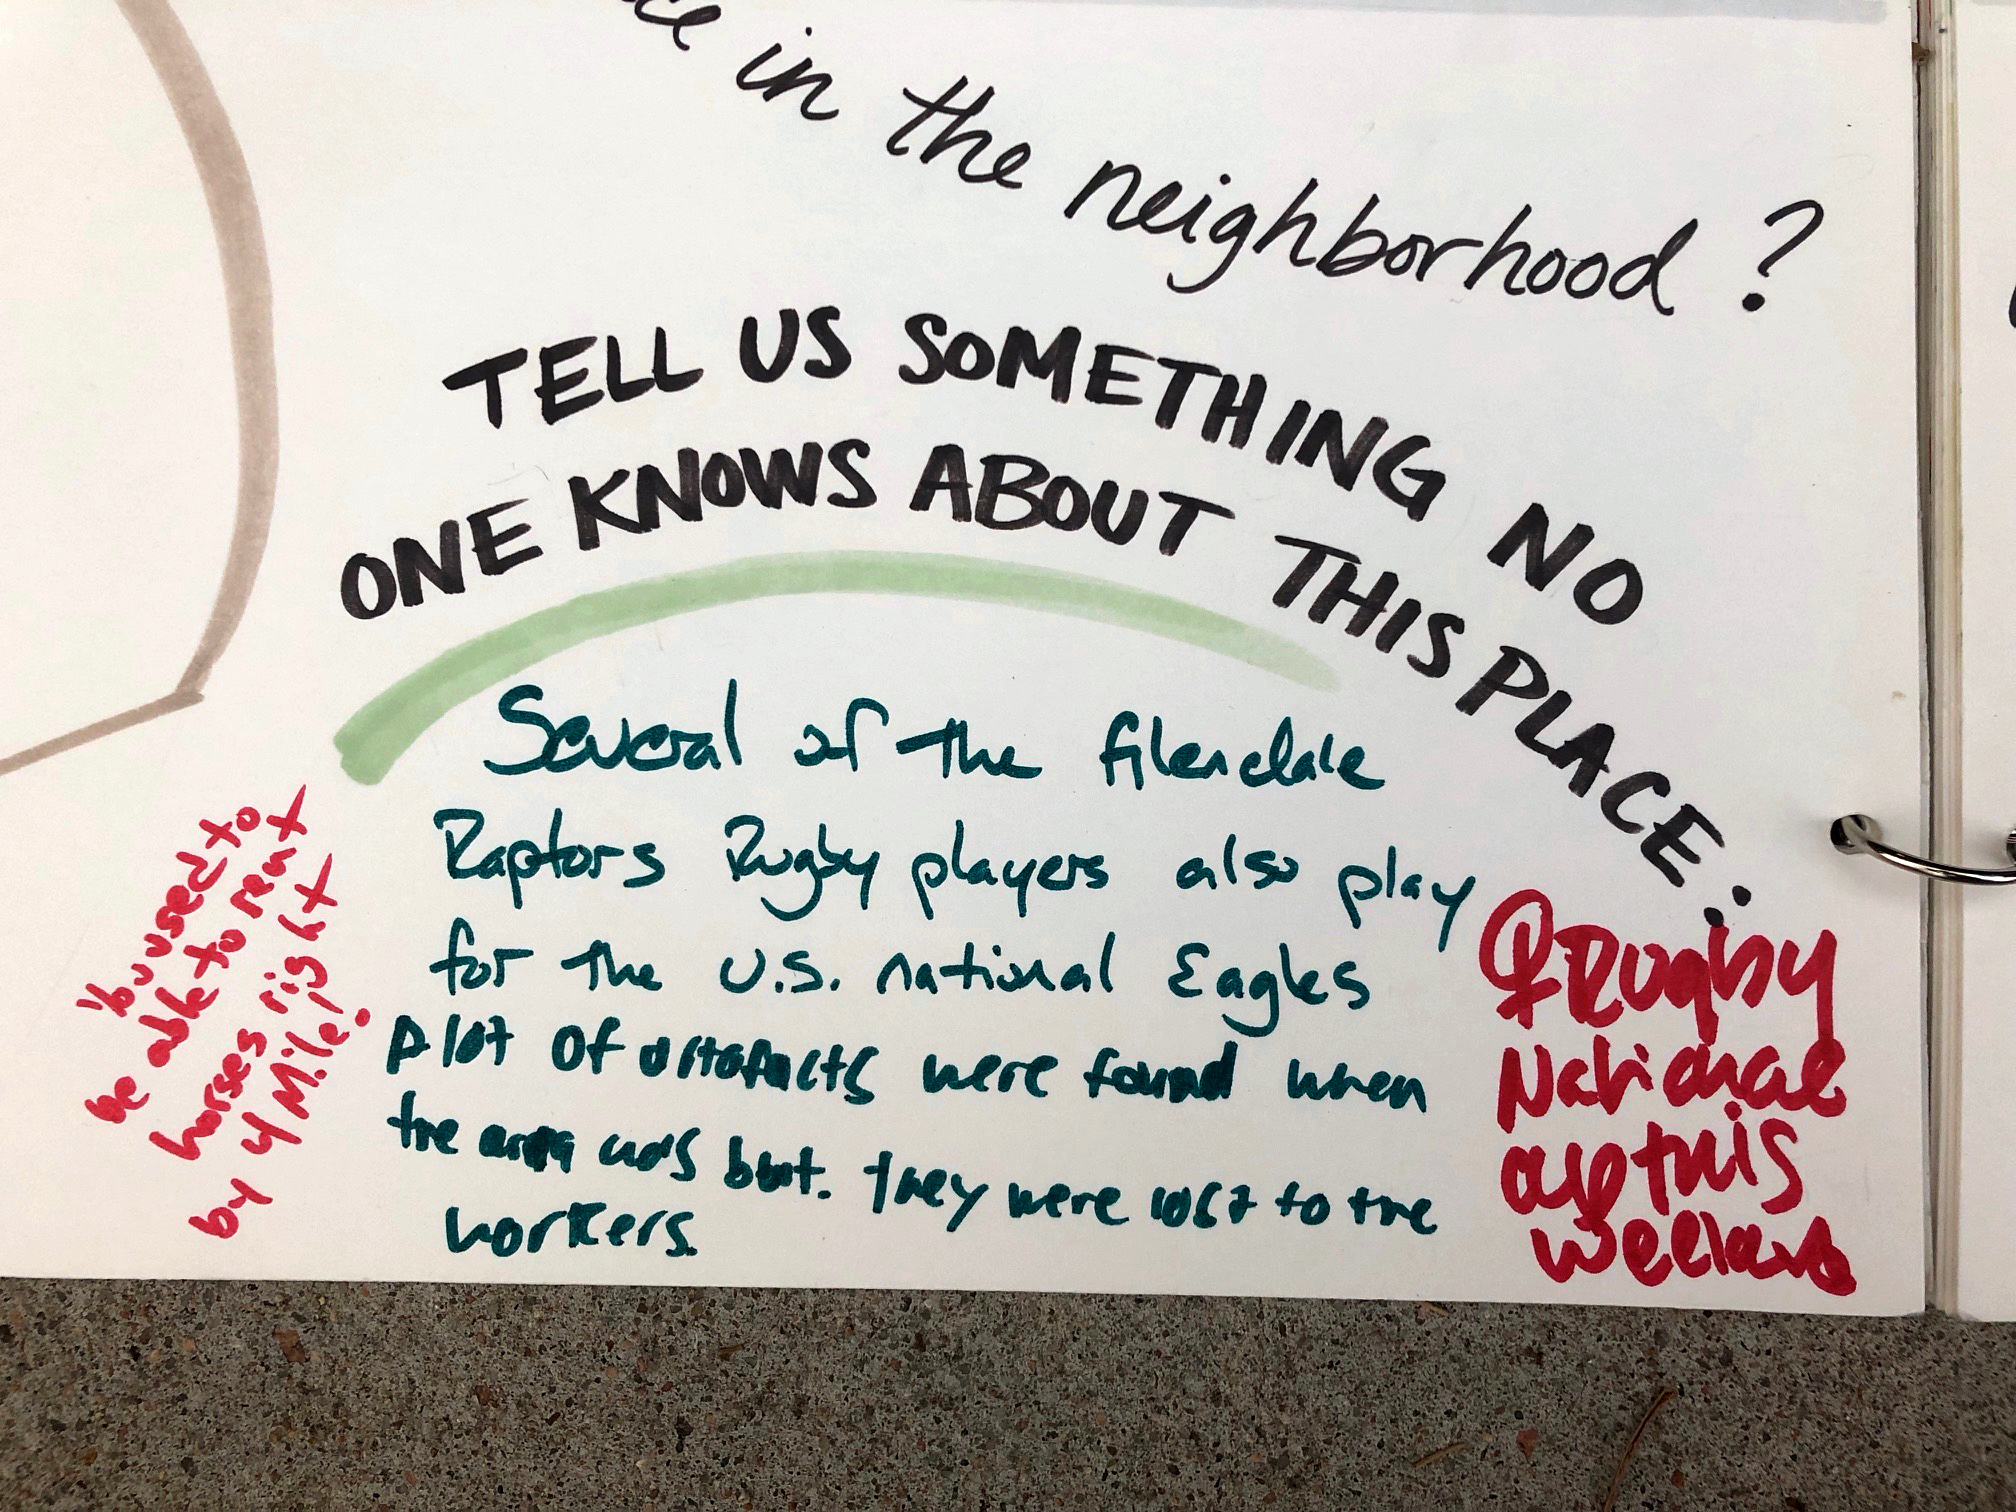 in the neighborhood?
TELL US SOMETHING NO
ONE KNOWS ABOUT THIS PLACE:
Several of the Glendale
Raptors Rugby players also play
for the U.S. national Eagles
A lot of artafacts were found when
the area was buit. They were lost to the
workers.
you used to
be able to rent
horses right
by 4 Mile!
Rugby
National
cup this
weekend